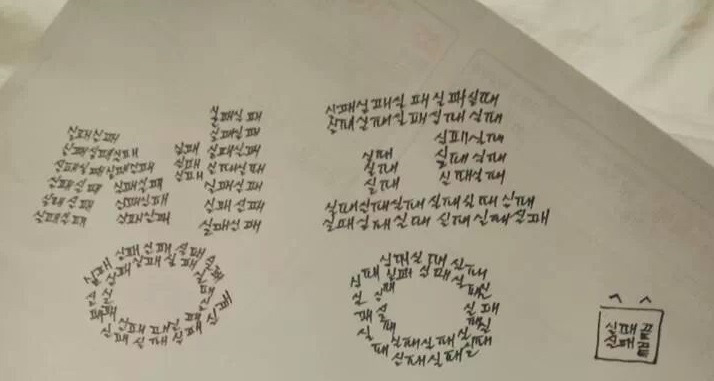 실패실패
실패실패실패
실패실패실패실패
실패실패 실패실패
실패실패 실패실패
실패실패 실패실패
실패
실패
실패
실패실패
실패실패
실패실패
실패실패
실패실패
실패 실패
실패실패
실패실패 실패 실패
실패 실패 실패
실패실패실패 실패 실패
실패실패실패실패실패
실패실패
실패실패
실패실패
실패
실패
실패
실패실패실패 실패실패 실패
실패실패실패 실패실패실패
실패실패 실패
실패 실패 실패
실패실패실패
실패실패
실패
실패